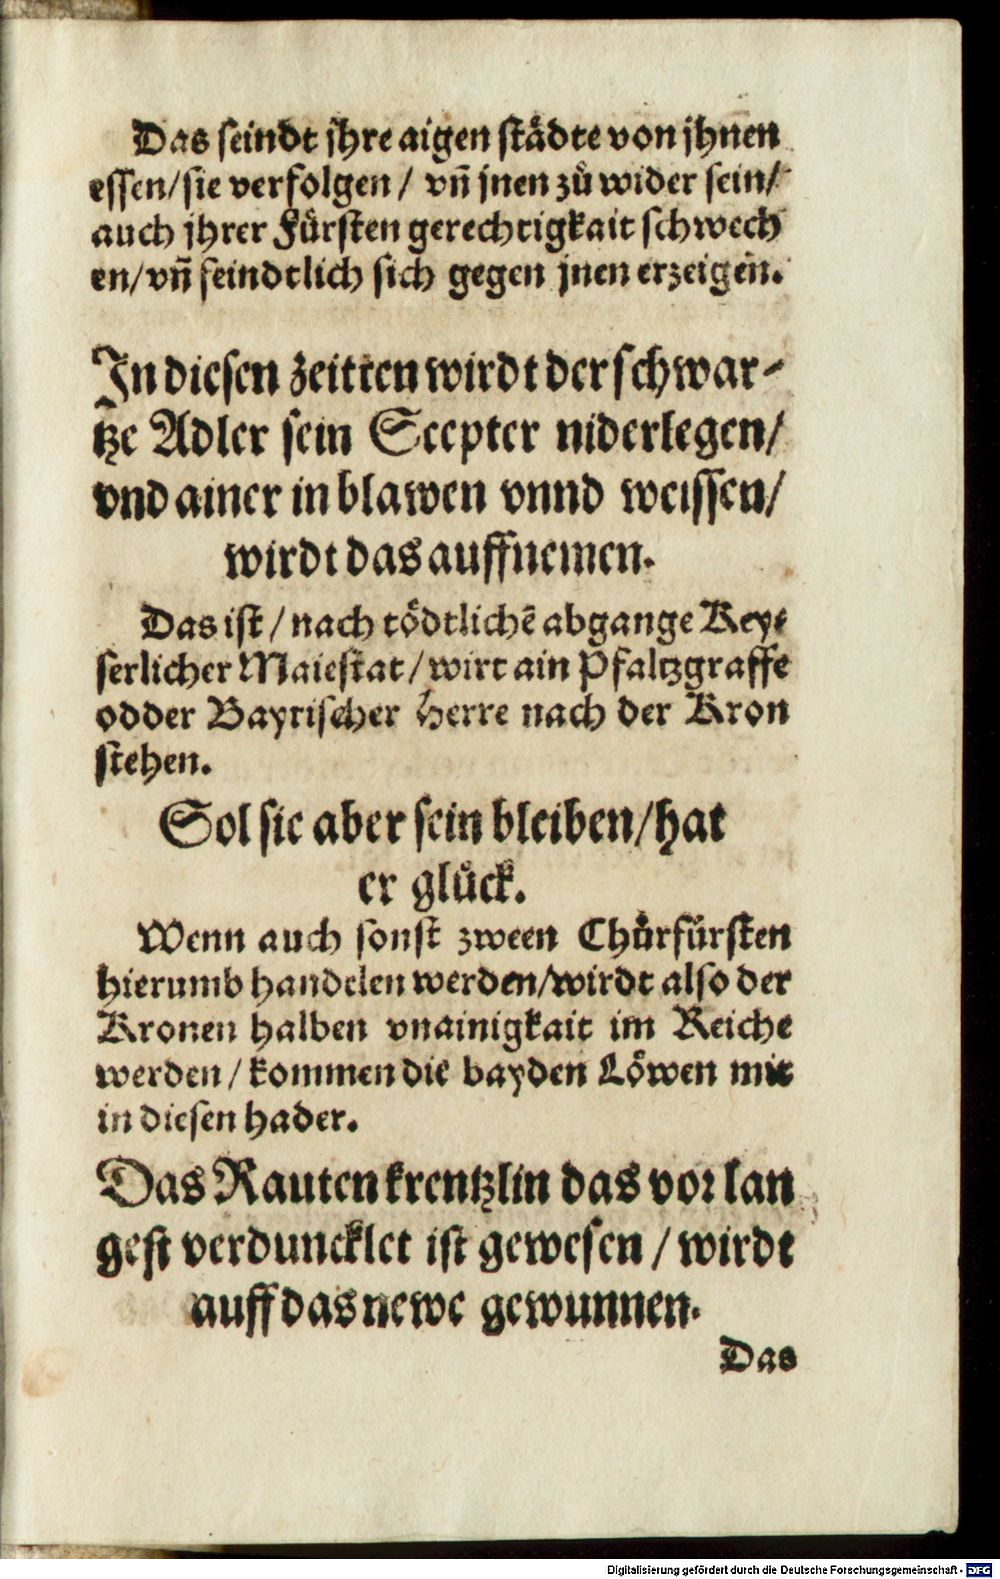 Das seindt jhre aigen städte von jhnen
essen/sie verfolgen / vñ jnen zů wider sein/
auch jhrer Fürsten gerechtigkait schwech
en/vñ feindtlich sich gegen jnen erzeigen.
In diesen zeitten wirdt der schwar-
tze Adler sein Scepter niderlegen/
vnd ainer in blawen vnnd weissen/
wirdt das auffnemen.
Das ist / nach tödtlichē abgange Key-
serlicher Maiestat / wirt ain Pfaltzgraffe
odder Bayrischer Herre nach der Kron
stehen.
Sol sie aber sein bleiben/hat
er glück.
Wenn auch sonst zween Chůrfürsten
hierumb handelen werden/wirdt also der
Kronen halben vnainigkait im Reiche
werden / kommen die bayden Löwen mit
in diesen hader.
Das Rautenkrentzlin das vor lan
gest verduncklet ist gewesen / wirdt
auff das newe gewunnen.
Das
Digitalisierung gefördert durch die Deutsche Forschungsgemeinschaft - DFG